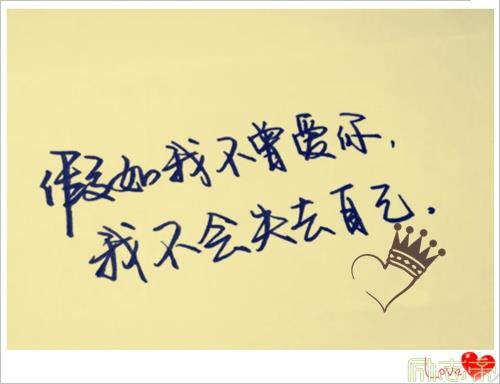 假如我不曾爱你，
我不会失去自己.
Love
励志亲